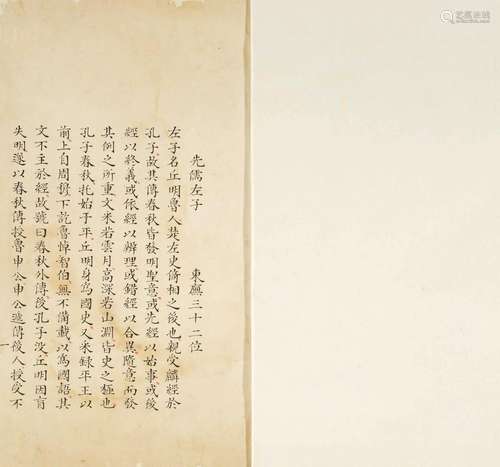 先儒左子 東廡三十二位
左子名丘明魯人楚左史倚相之後也親受麟經於
孔子故其傳春秋皆發明聖意或先經以始事或後
經以終義或依經以辨理或錯經以合異隨意而發
其例之所重文釆若雲月高深若山淵皆史之極也
孔子春秋托始于平丘明身爲國史又釆録平王以
前上自周穆下訖魯悼智伯無不備載以爲國語其
文不主於經故號曰春秋外傳後孔子没丘明因盲
失明遂以春秋傳授魯申公申公遞傳後人授受不